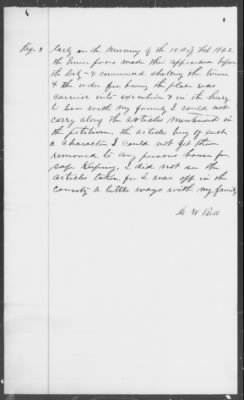 Pag. 3
Early on the Morning of the 10th of Feb 1862
the Union forces made their appearance before
the City & commenced shelling the town
& the order for burning the place was
carried into execution & in the hurry
to leave with my family I could not
carry along the articles mentioned in
the petition. the articles being of such
a character I could not get them
removed to any persons house for
safe keeping. I did not see the
articles taken for I was off in the
country a little ways with my family
W Bell